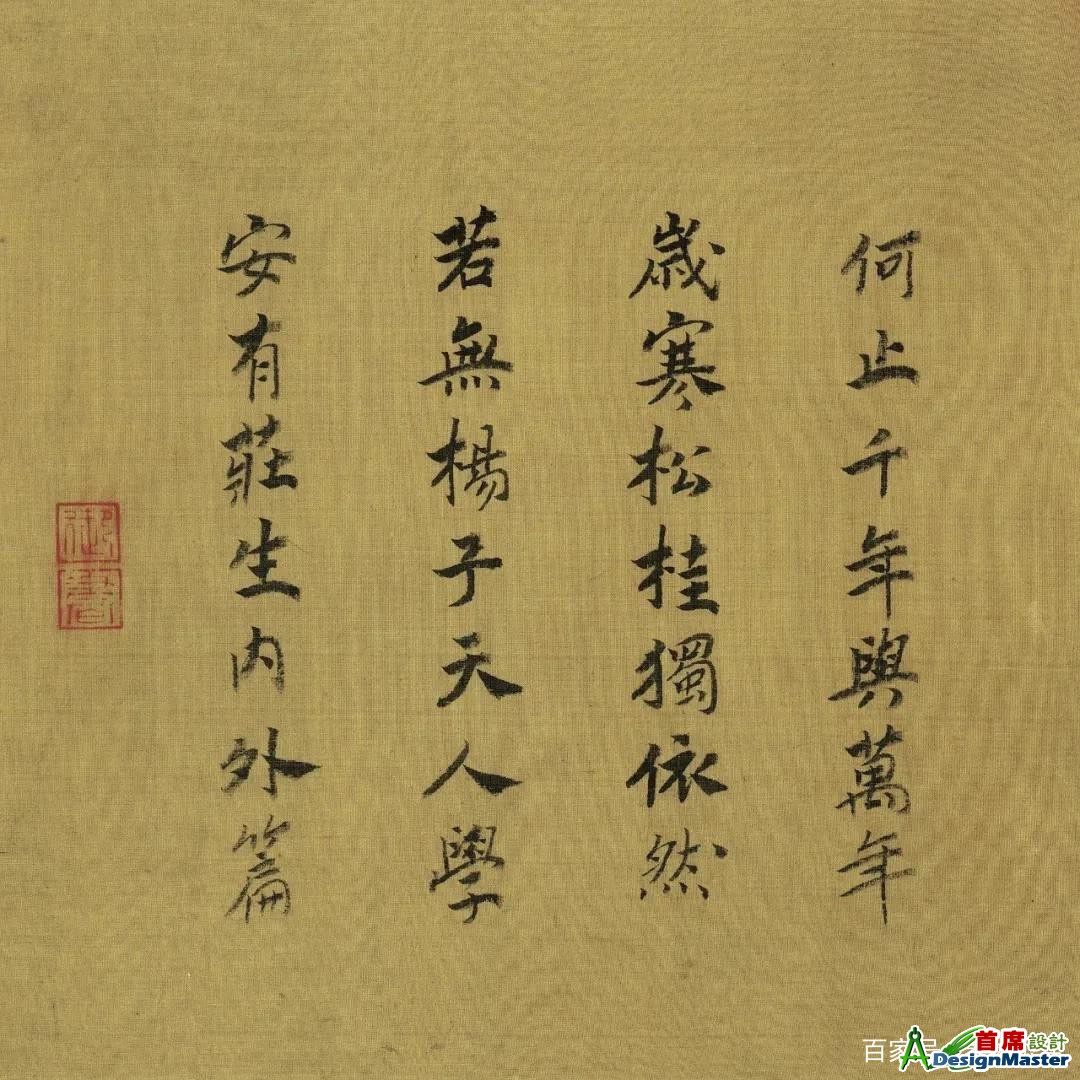 何止千年與萬年
歲寒松桂獨依然
若無楊子天人學
安有莊生内外篇
御書
百家号
首席設計
ADesignMaster